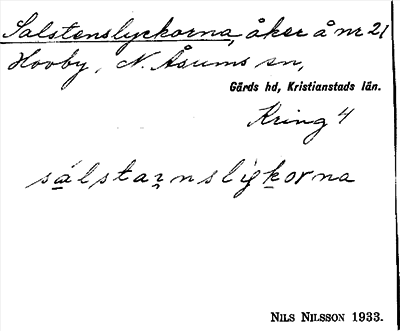 Salstenslyckorna, åker å nr 21
Hovby, N. Åsums sn,
Gärds hd, Kristianstads län.
Kring 4
sálstarnsligkorna
NILS NILSSON 1933.